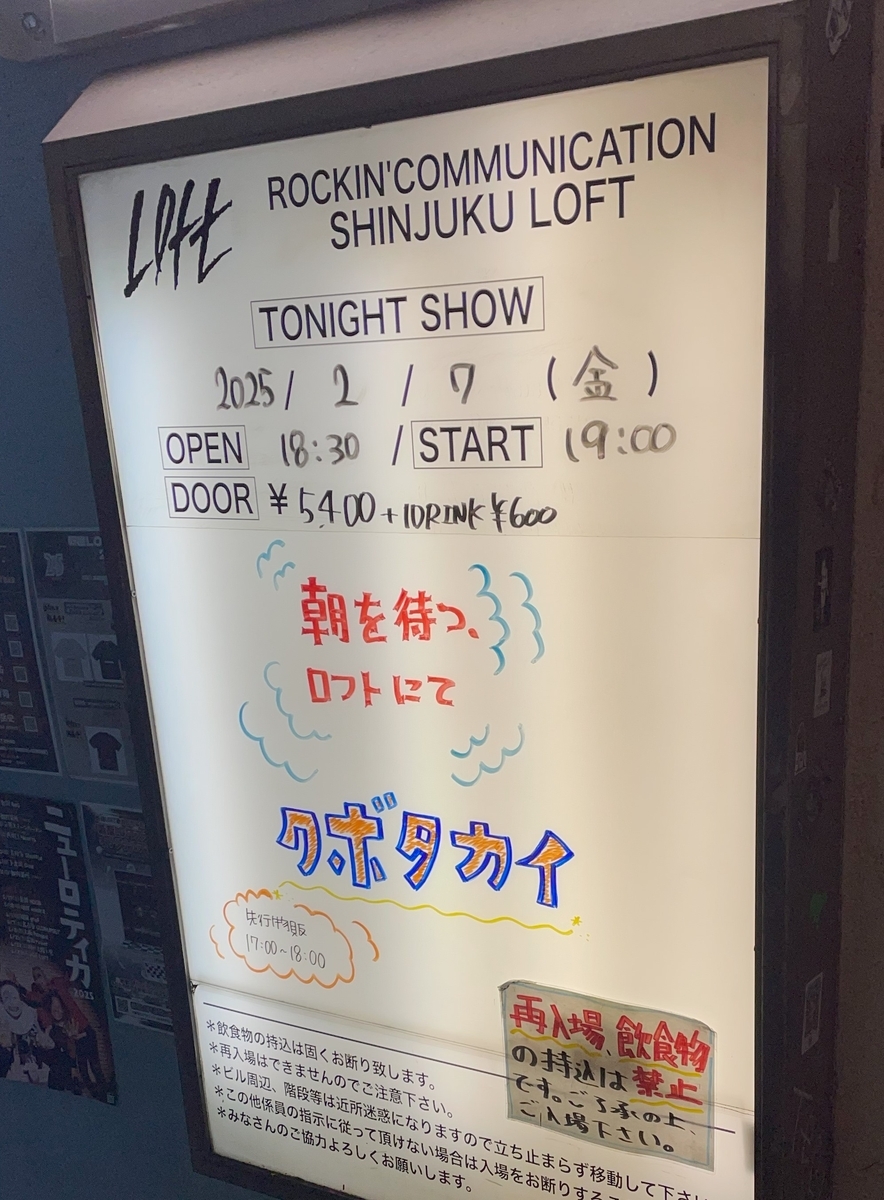 Loft
ROCKIN'COMMUNICATION
SHINJUKU LOFT
TONIGHT SHOW
2025/ 2 / 7 (金)
OPEN 18:30 / START 19:00
DOOR ¥5,400 +1DRINK ¥600
朝を待つ、
ロフトにて
クボタカイ
先行物販
17:00~18:00
再入場、飲食物
の持込は禁止
です。ご了承の上、
ご入場下さい。
*飲食物の持込は固くお断り致します。
*再入場はできませんのでご注意下さい。
*ビル周辺、階段等は近所迷惑になりますので立ち止まらず移動して下さい
*この他係員の指示に従って頂けない場合は入場をお断りするこ
*みなさんのご協力よろしくお願いします。
ニューロティカ
2025